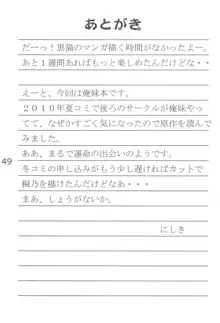 あとがき
だーっ!黒猫のマンガ描く時間がなかったよー。
あと1週間あればもっと楽しめたんだけどな・・
えーと、今回は俺妹本です。
2010年夏コミで後ろのサークルが俺妹やっ
てて、なぜかすごく気になったので原作を読んで
みました。
ああ、まるで運命の出会いのようです。
冬コミの申し込みがもう少し遅ければカットで
桐乃を描けたんだけどなあ・・・
まあ、しょうがないか。
にしき
49